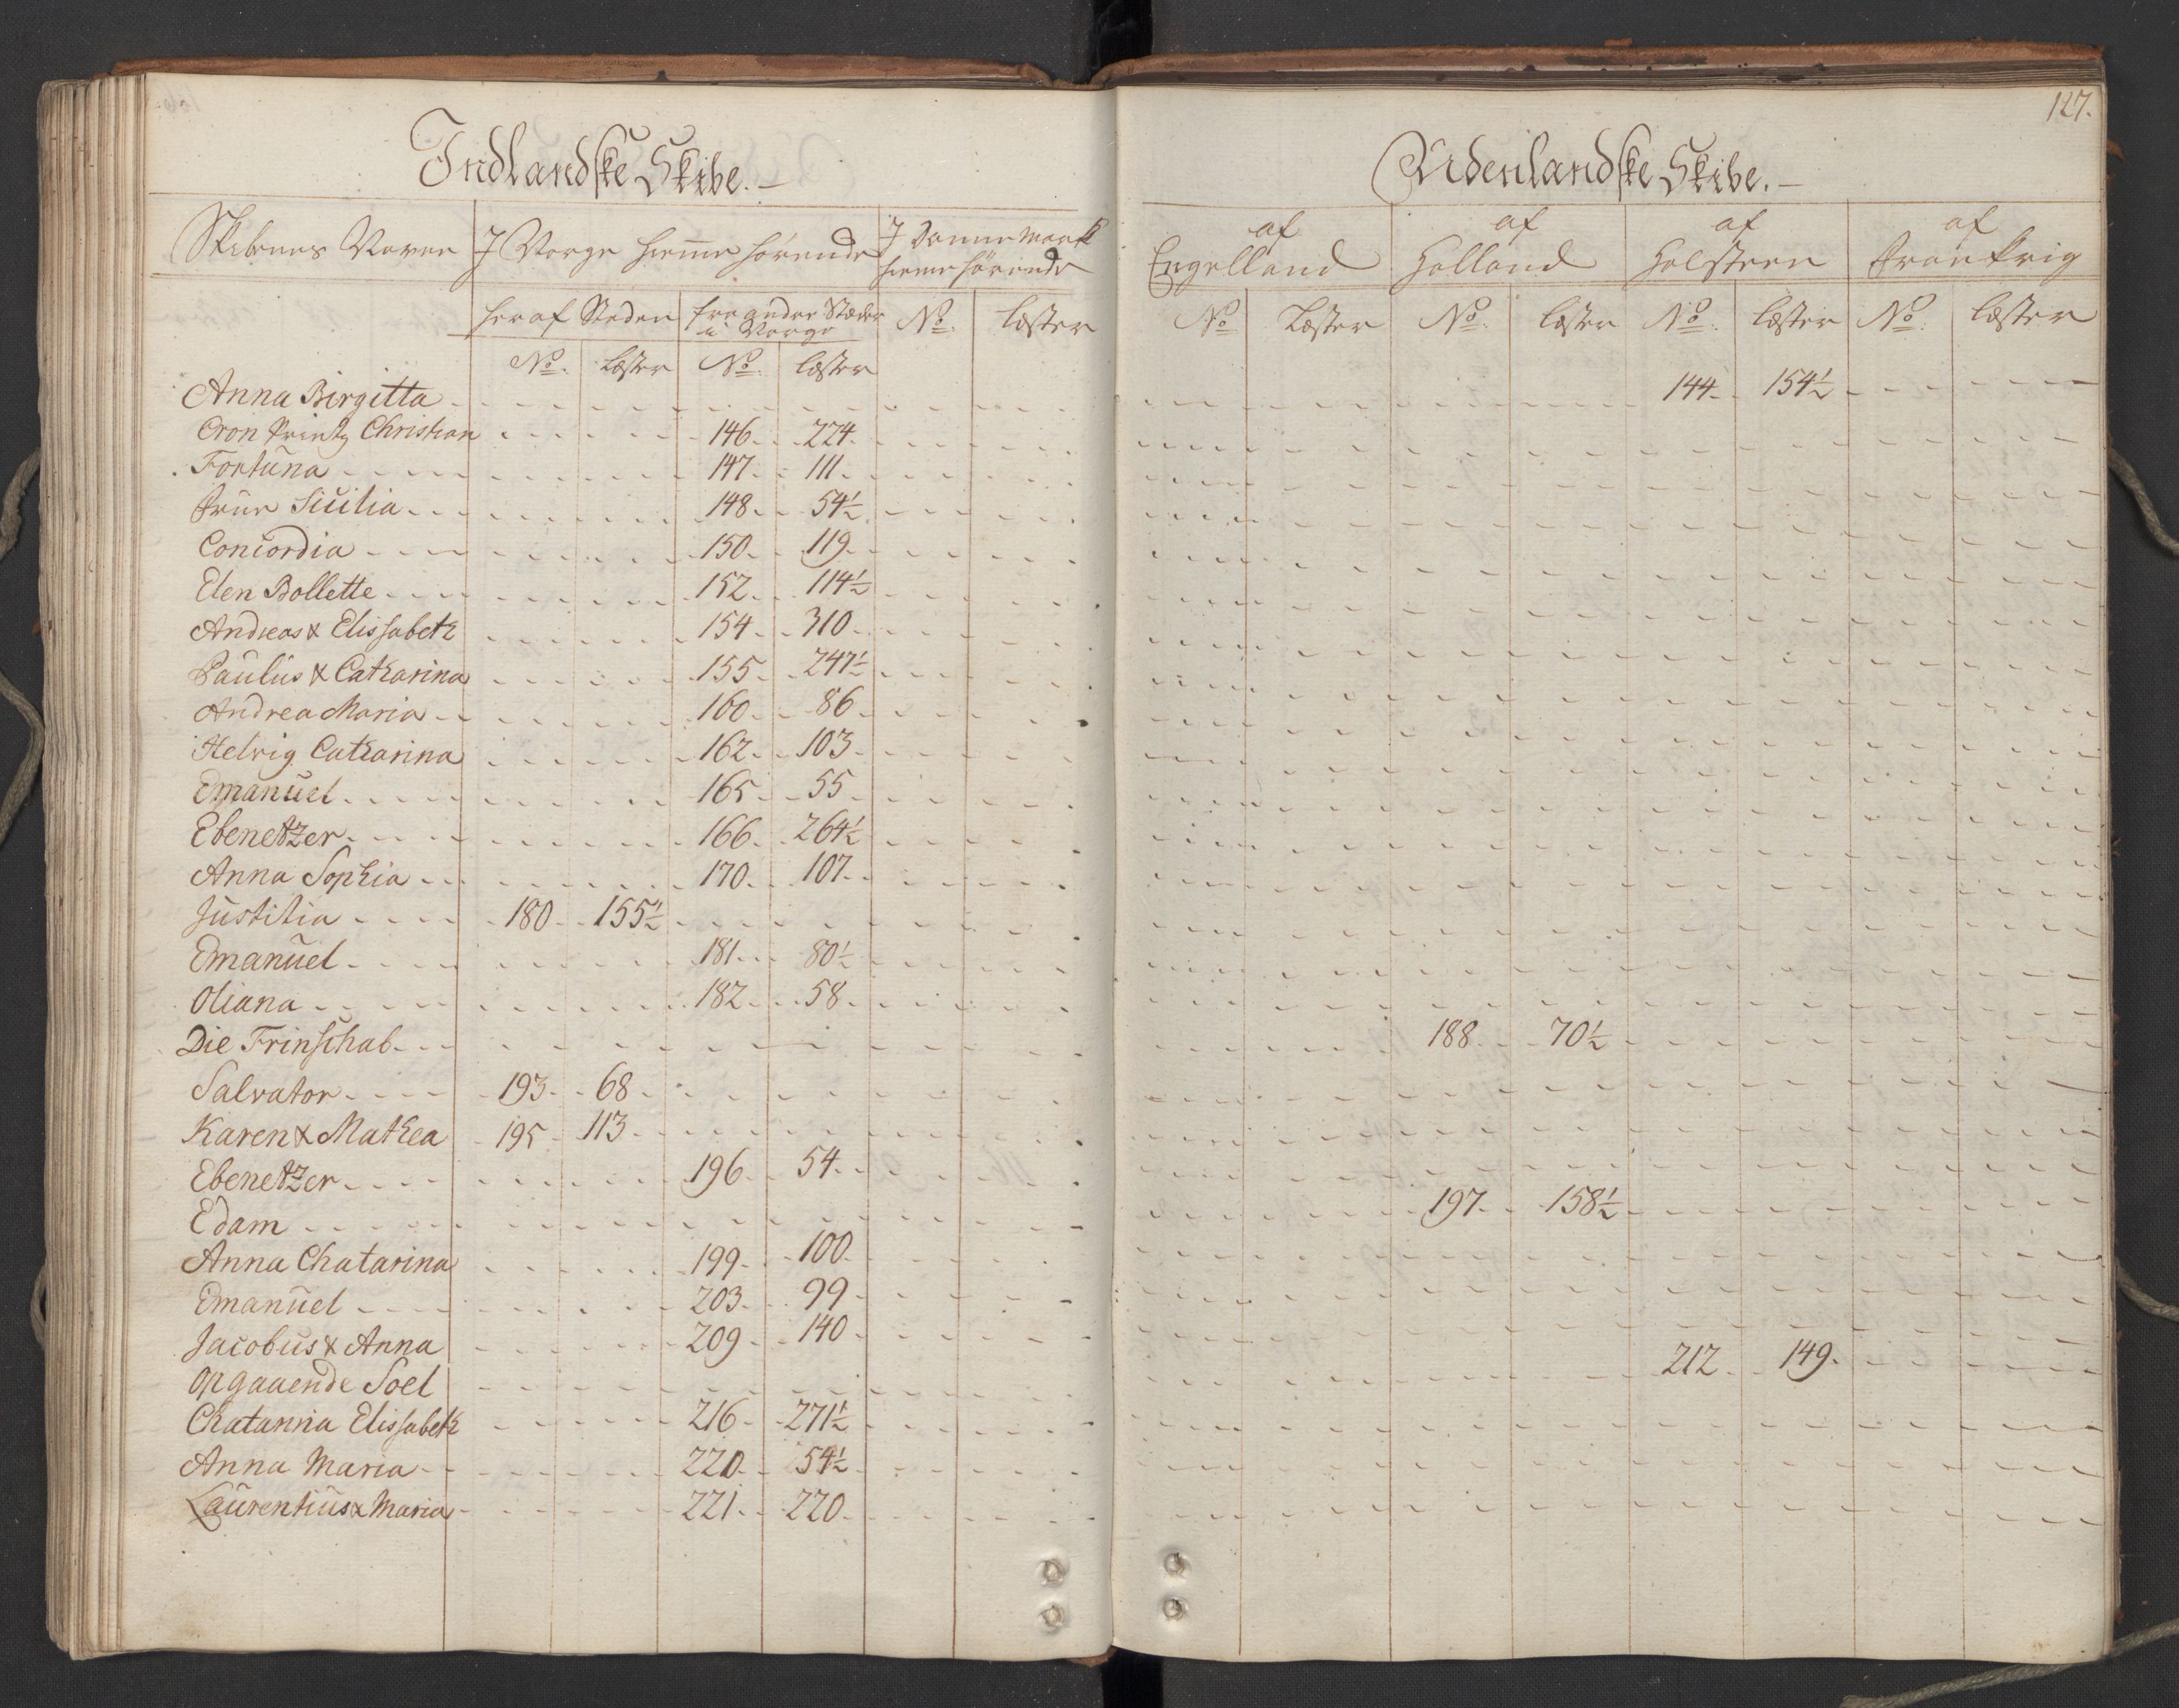 127.
Indlandske Skibe.
Udenlandske Skibe.
Skibenes Navne I Norge hiemme hörende I Dannemark hiemehörende
af Engelland af Holland af Holsteen af Frankrig
her af Staden fra andre Stæder i Norge No. Læster
No. Læster No. Læster No. Læster No. Læster
No. Læster No. Læster
Anna Birgitta 144. 154½
Cron Printz Christian 146. 224.
Fortuna 147. 111.
Frue Sicilia 148. 54½
Concordia 150. 119.
Elen Bollette 152. 114½
Andreas & Elissabeth 154. 310.
Paulus & Catharina 155. 247½
Andrea Maria 160. 86.
Helvig Catharina 162. 103.
Emanuel 165. 55.
Ebenetzer 166. 264½
Anna Sophia 170. 107.
Justitia 180. 155½
Emanuel 181. 80½
Oliana 182. 58.
Die Frinschab 188. 70½
Salvator 193. 68.
Karen & Mathea 195. 113.
Ebenetzer 196. 54.
Edam 197. 158½
Anna Chatarina 199. 100.
Emanuel 203. 99.
Jacobus & Anna 209. 140.
Opgaaende Soel 212. 149.
Chatarina Elissabeth 216. 271½
Anna Maria 220. 54½
Laurentius & Maria 221. 220.